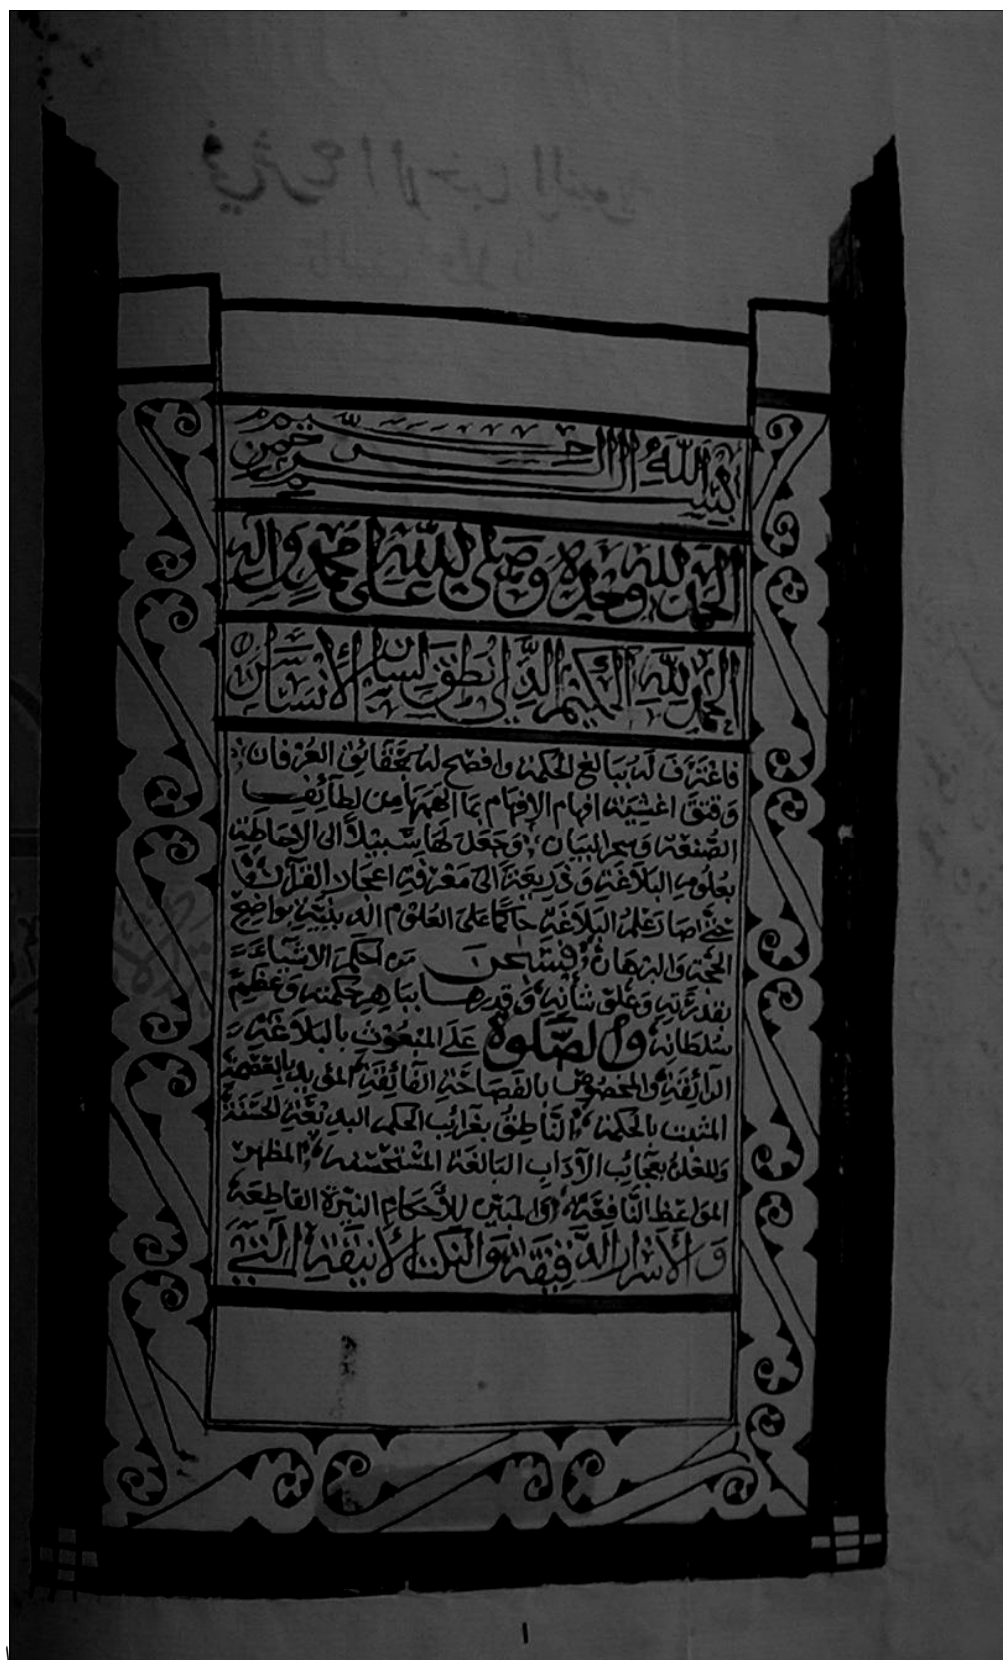 بسم الله الرحمن الرحيم
الحمد لله وحده وصلى الله على محمد وآله
الحمد لله الحكيم الذي انطق لسان الإنسان
فاغترف له ببالغ الحكمة وافصح له بحقائق العرفان
وفتق اغشية افهام الافهام بما الهمها من لطائف
الصنعة وسحر البيان وجعل لها سبيلا الى الاحاطة
بعلوم البلاغة وذريعة الى معرفة اعجاز القرآن
حتى صار علم البلاغة حاكما على العلوم الدينية بواضح
الحجة والبرهان فسبحن من احكم الاشياء
بقدرته وعلو شأنه وقدرها بباهر حكمته وعظيم
سلطانه والصلوة على المبعوث بالبلاغة
الرائقة والمخصوص بالفصاحة الفائقة المؤيد بالعصمة
المثبت بالحكمة الناطق بغرائب الحكم البديعة الحسنة
بعجائب الآداب البالغة المستحسنه المظهر
المواعظ النافعة والمبين للأحكام النيرة القاطعة
والأسرار الدقيقة والنكت الأنيقة النبي
١